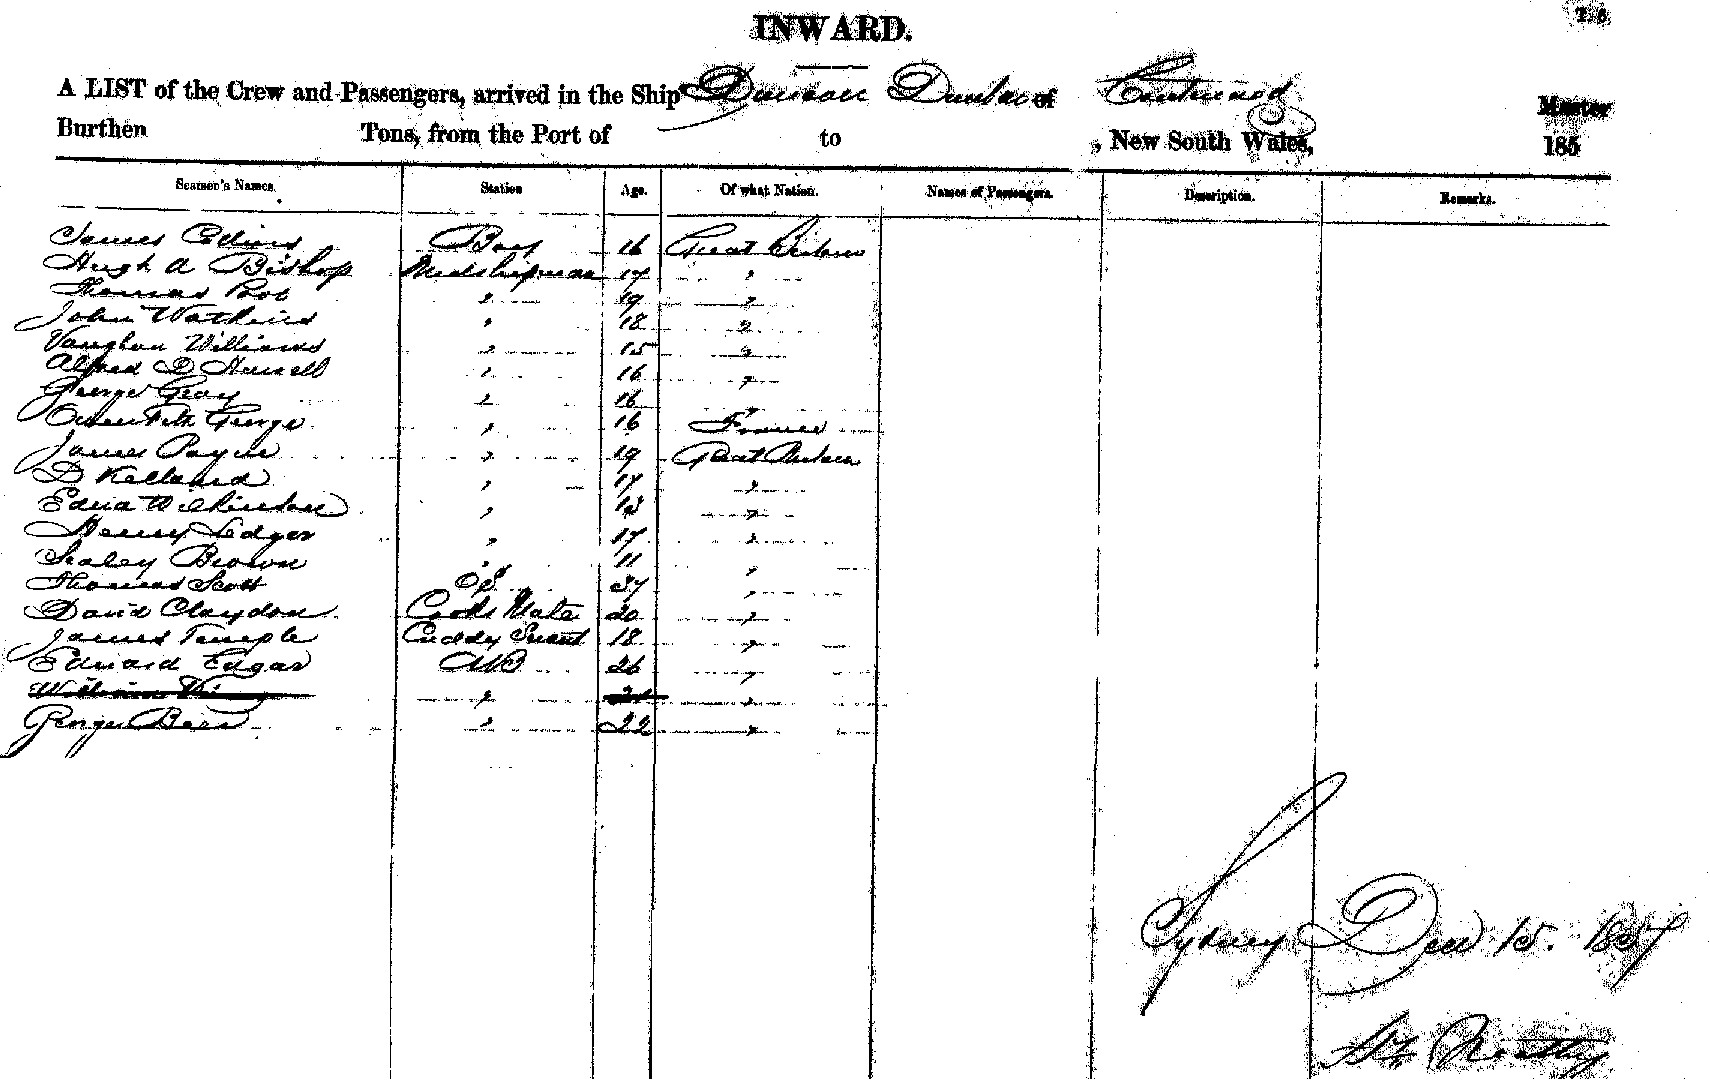 INWARD.
A LIST of the Crew and Passengers, arrived in the Ship Duncan Dunbar of Continued Master
Burthen Tons, from the Port of to , New South Wales, 185
Seamen's Names. Station Age. Of what Nation. Names of Passengers. Description. Remarks.
James Collins Boy 16 Great Britain
Hugh A Bishop Midshipman 17 "
Thomas " 19 "
John Watkins " 18 "
Vaughan Williams " 15 "
Alfred D " 16 "
George Gray " 16 "
George " 16 France
James Payne " 19 Great Britain
D Kelland " 17 "
Wilkinson " "
Henry Ledger " 17 "
Sealey Brown " 11 "
Thomas Scott OS 37 "
David Claydon Cooks Mate 20 "
James Temple Cuddy Servant 18 "
Edward Edgar AB 26 "
William " "
George " 22 "
Sydney Dec 15. 1857